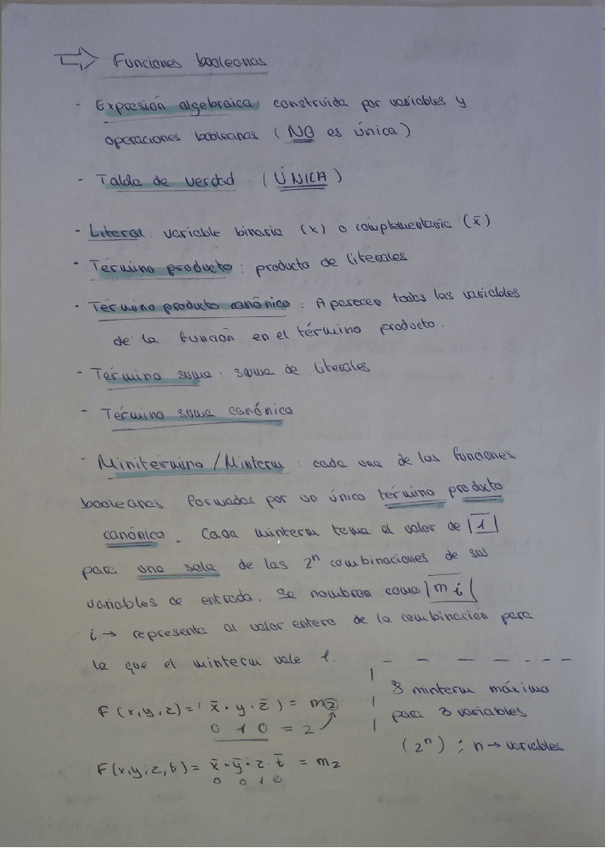 ⇒ Funciones booleanas
- Expresión algebraica construida por variables y
operaciones booleanas (NO es única)
- Tabla de verdad : (ÚNICA)
- Literal: variable binaria (x) o complementaria (x̄)
- Término producto : producto de literales
- Término producto canónico : Aparecen todas las variables
de la función en el término producto.
- Término suma : suma de literales
- Término suma canónico
- Minitermino / Minterm : cada una de las funciones
booleanas formadas por un único término producto
canónico. Cada minterm toma el valor de 1
para una sola de las 2ⁿ combinaciones de sus
variables de entrada. Se nombran como m i
i → representa al valor entero de la combinación para
la que el minterm vale 1.
F (x, y, z) = (x̄ · y · z̄) = m2
0 1 0 = 2
F(x,y,z,t) = x̄ · ȳ · z · t̄ = m2
0 0 1 0
8 minterm máximo
para 3 variables
(2ⁿ) ; n → variables